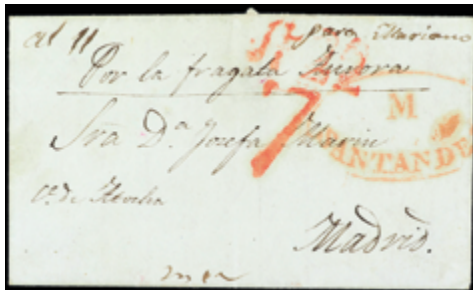 al 11
para Mariano
Por la fragata Aurora
7
M
SANTANDE
Sra D.ª Josefa Marin
C.e de Atocha
Madrid.